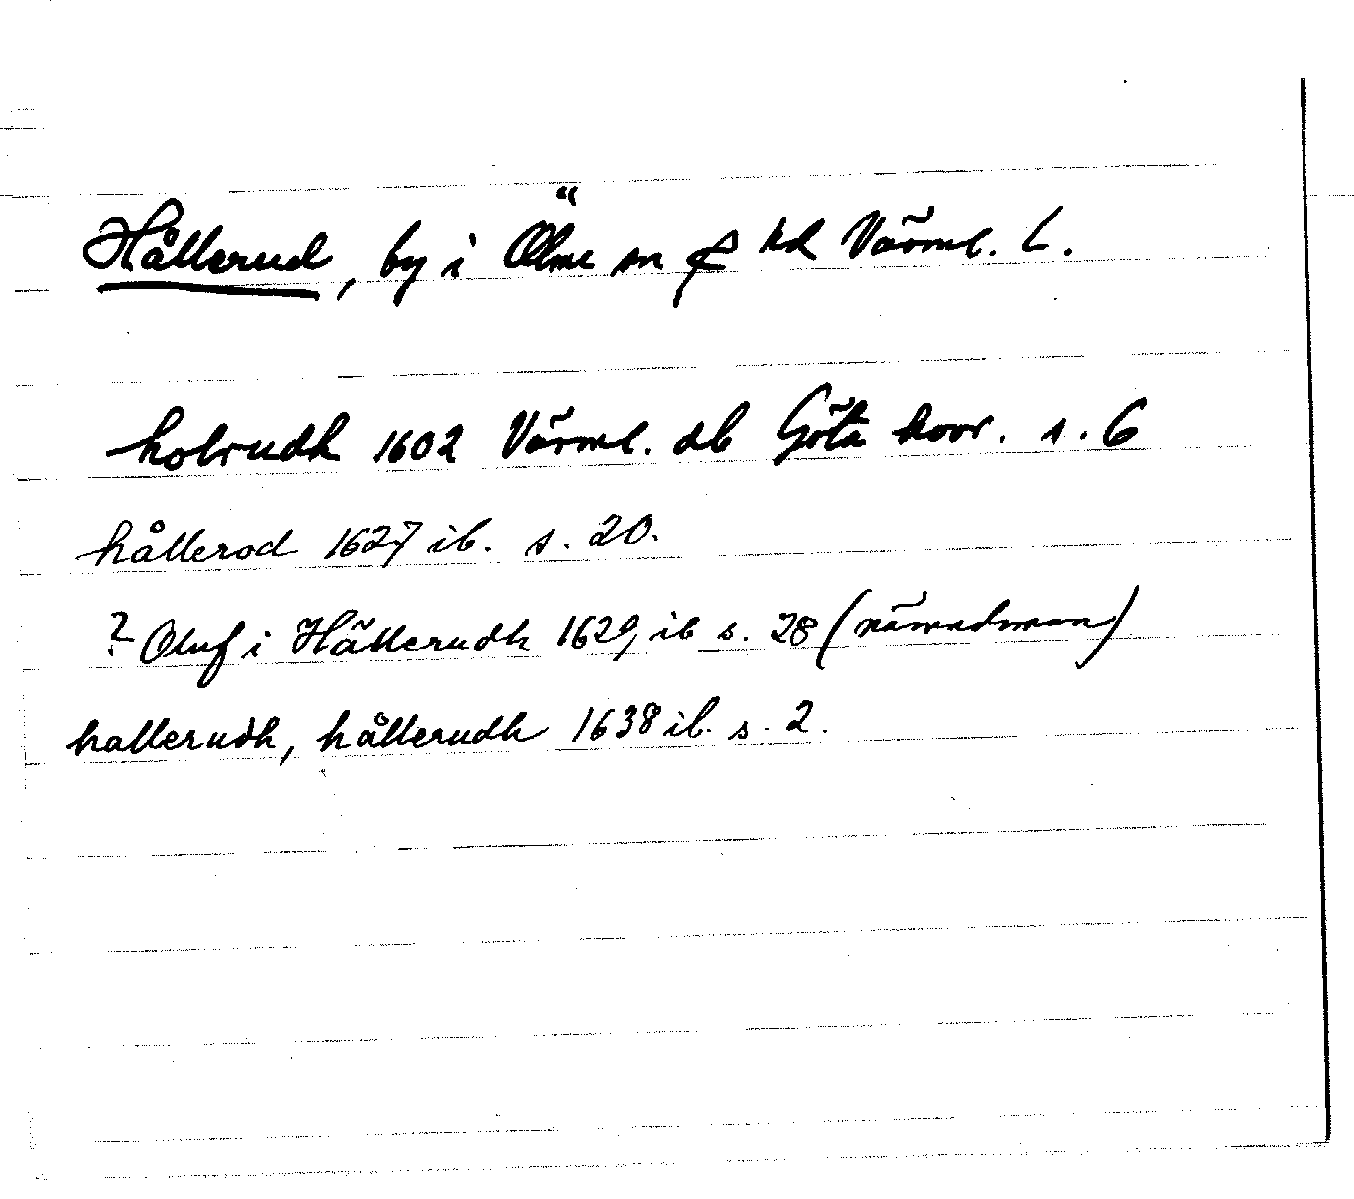 Hållerud, by i Ölme sn & hd Värml. L.
holrudh 1602 Värml. db Göta hovr. s. 6
hållerod 1627 ib. s. 20.
? Oluf i Hällerudh 1629 ib s. 28 (nämndman)
hallerudh, hållerudh 1638 ib. s. 2.